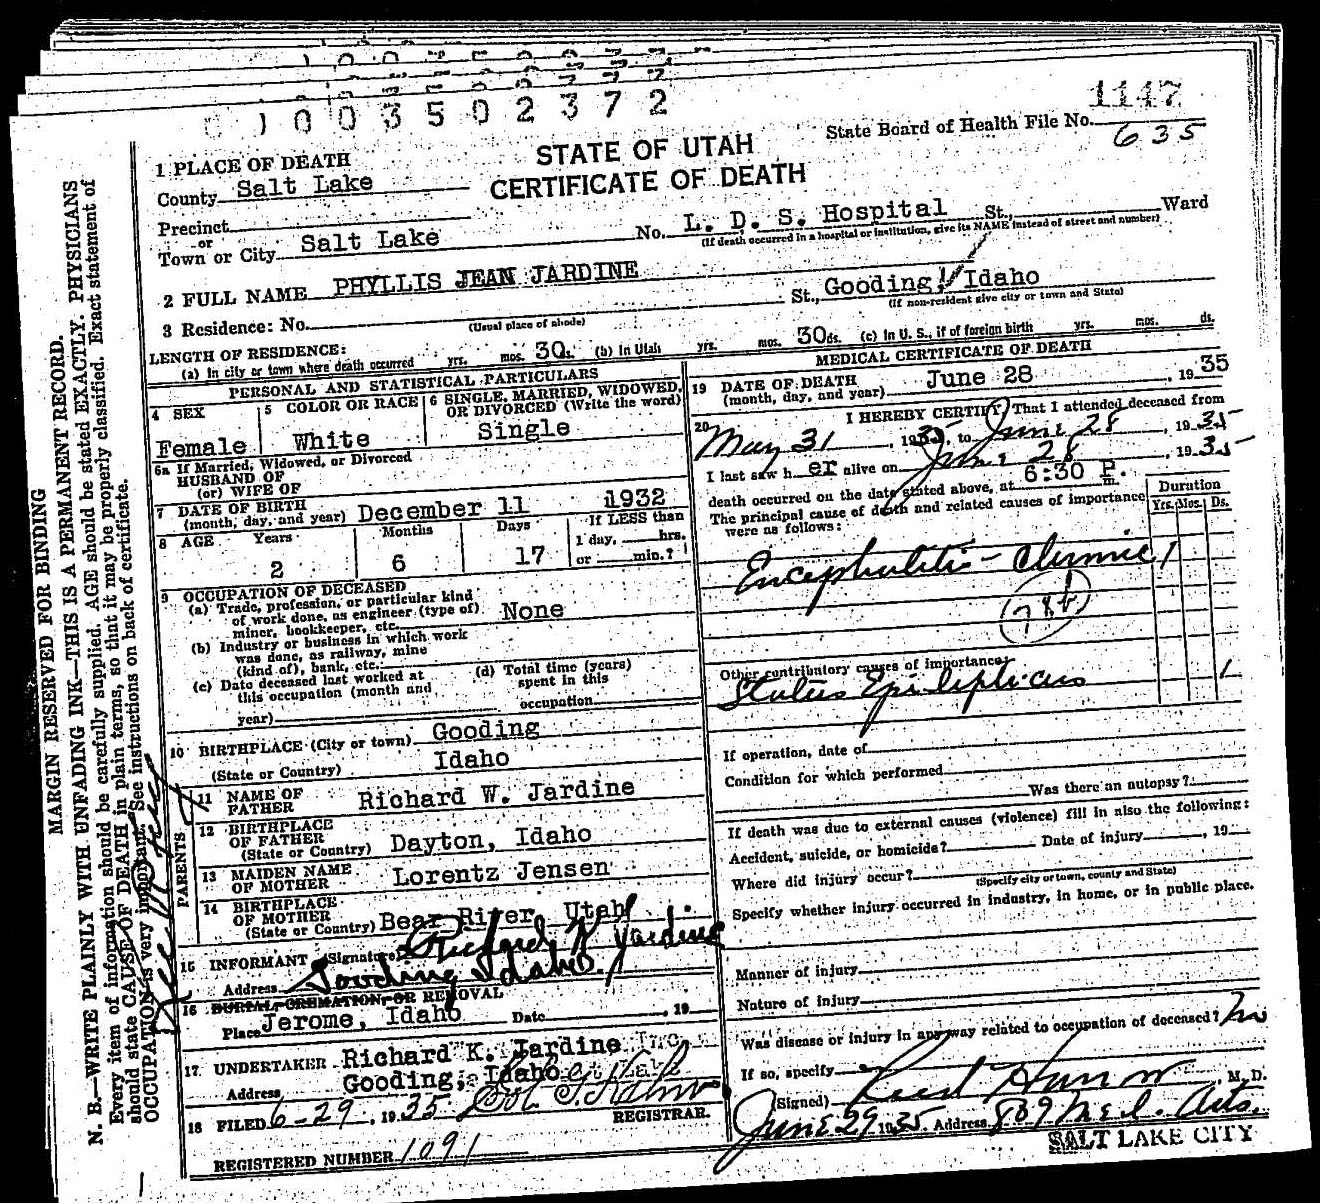 1003502372
1147
State Board of Health File No. 635
STATE OF UTAH
CERTIFICATE OF DEATH
1 PLACE OF DEATH
County Salt Lake
Precinct
or
Town or City Salt Lake No. L. D. S. Hospital St., Ward
(If death occurred in a hospital or institution, give its NAME instead of street and number)
2 FULL NAME PHYLLIS JEAN JARDINE
3 Residence: No. St., Gooding, Idaho
(Usual place of abode) (If non-resident give city or town and State)
LENGTH OF RESIDENCE:
(a) In city or town where death occurred yrs. mos. 30 ds. (b) In Utah yrs. mos. 30 ds. (c) In U. S., if of foreign birth yrs. mos. ds.
PERSONAL AND STATISTICAL PARTICULARS
4 SEX Female
5 COLOR OR RACE White
6 SINGLE, MARRIED, WIDOWED, OR DIVORCED (Write the word) Single
6a If Married, Widowed, or Divorced
HUSBAND OF
(or) WIFE OF
7 DATE OF BIRTH
(month, day, and year) December 11 1932
8 AGE Years Months Days If LESS than
2 6 17 1 day, hrs.
or min.?
9 OCCUPATION OF DECEASED
(a) Trade, profession, or particular kind
of work done, as engineer (type of)
miner, bookkeeper, etc. None
(b) Industry or business in which work
was done, as railway, mine
(kind of), bank, etc.
(c) Date deceased last worked at
this occupation (month and
year)
(d) Total time (years)
spent in this
occupation
10 BIRTHPLACE (City or town) Gooding
(State or Country) Idaho
PARENTS
11 NAME OF
FATHER Richard W. Jardine
12 BIRTHPLACE
OF FATHER
(State or Country) Dayton, Idaho
13 MAIDEN NAME
OF MOTHER Lorentz Jensen
14 BIRTHPLACE
OF MOTHER
(State or Country) Bear River, Utah
15 INFORMANT (Signature) Richard K Jardine
Address Gooding Idaho.
16 BURIAL, CREMATION, OR REMOVAL
Place Jerome, Idaho Date , 19
17 UNDERTAKER Richard K. Jardine Inc.
Address Gooding, Idaho
18 FILED 6-29, 1935
REGISTRAR.
REGISTERED NUMBER 1091
MEDICAL CERTIFICATE OF DEATH
19 DATE OF DEATH
(month, day, and year) June 28, 1935
20 I HEREBY CERTIFY, That I attended deceased from
May 31, 1935, to June 28, 1935
I last saw her alive on June 28, 1935
death occurred on the date stated above, at 6:30 P. m.
The principal cause of death and related causes of importance
were as follows:
Duration
Yrs. Mos. Ds.
Encephalitis - chronic 1
78b
Other contributory causes of importance:
Status Epilepticus 1
If operation, date of
Condition for which performed
Was there an autopsy?
If death was due to external causes (violence) fill in also the following:
Accident, suicide, or homicide? Date of injury , 19
Where did injury occur?
(Specify city or town, county and State)
Specify whether injury occurred in industry, in home, or in public place.
Manner of injury
Nature of injury
Was disease or injury in any way related to occupation of deceased? No
If so, specify
(Signed) Reed Harrow, M. D.
June 29 1935. Address 809 Med. Arts.
SALT LAKE CITY
MARGIN RESERVED FOR BINDING
N. B.—WRITE PLAINLY WITH UNFADING INK—THIS IS A PERMANENT RECORD.
Every item of information should be carefully supplied. AGE should be stated EXACTLY. PHYSICIANS
should state CAUSE OF DEATH in plain terms, so that it may be properly classified. Exact statement of
OCCUPATION is very important. See instructions on back of certificate.